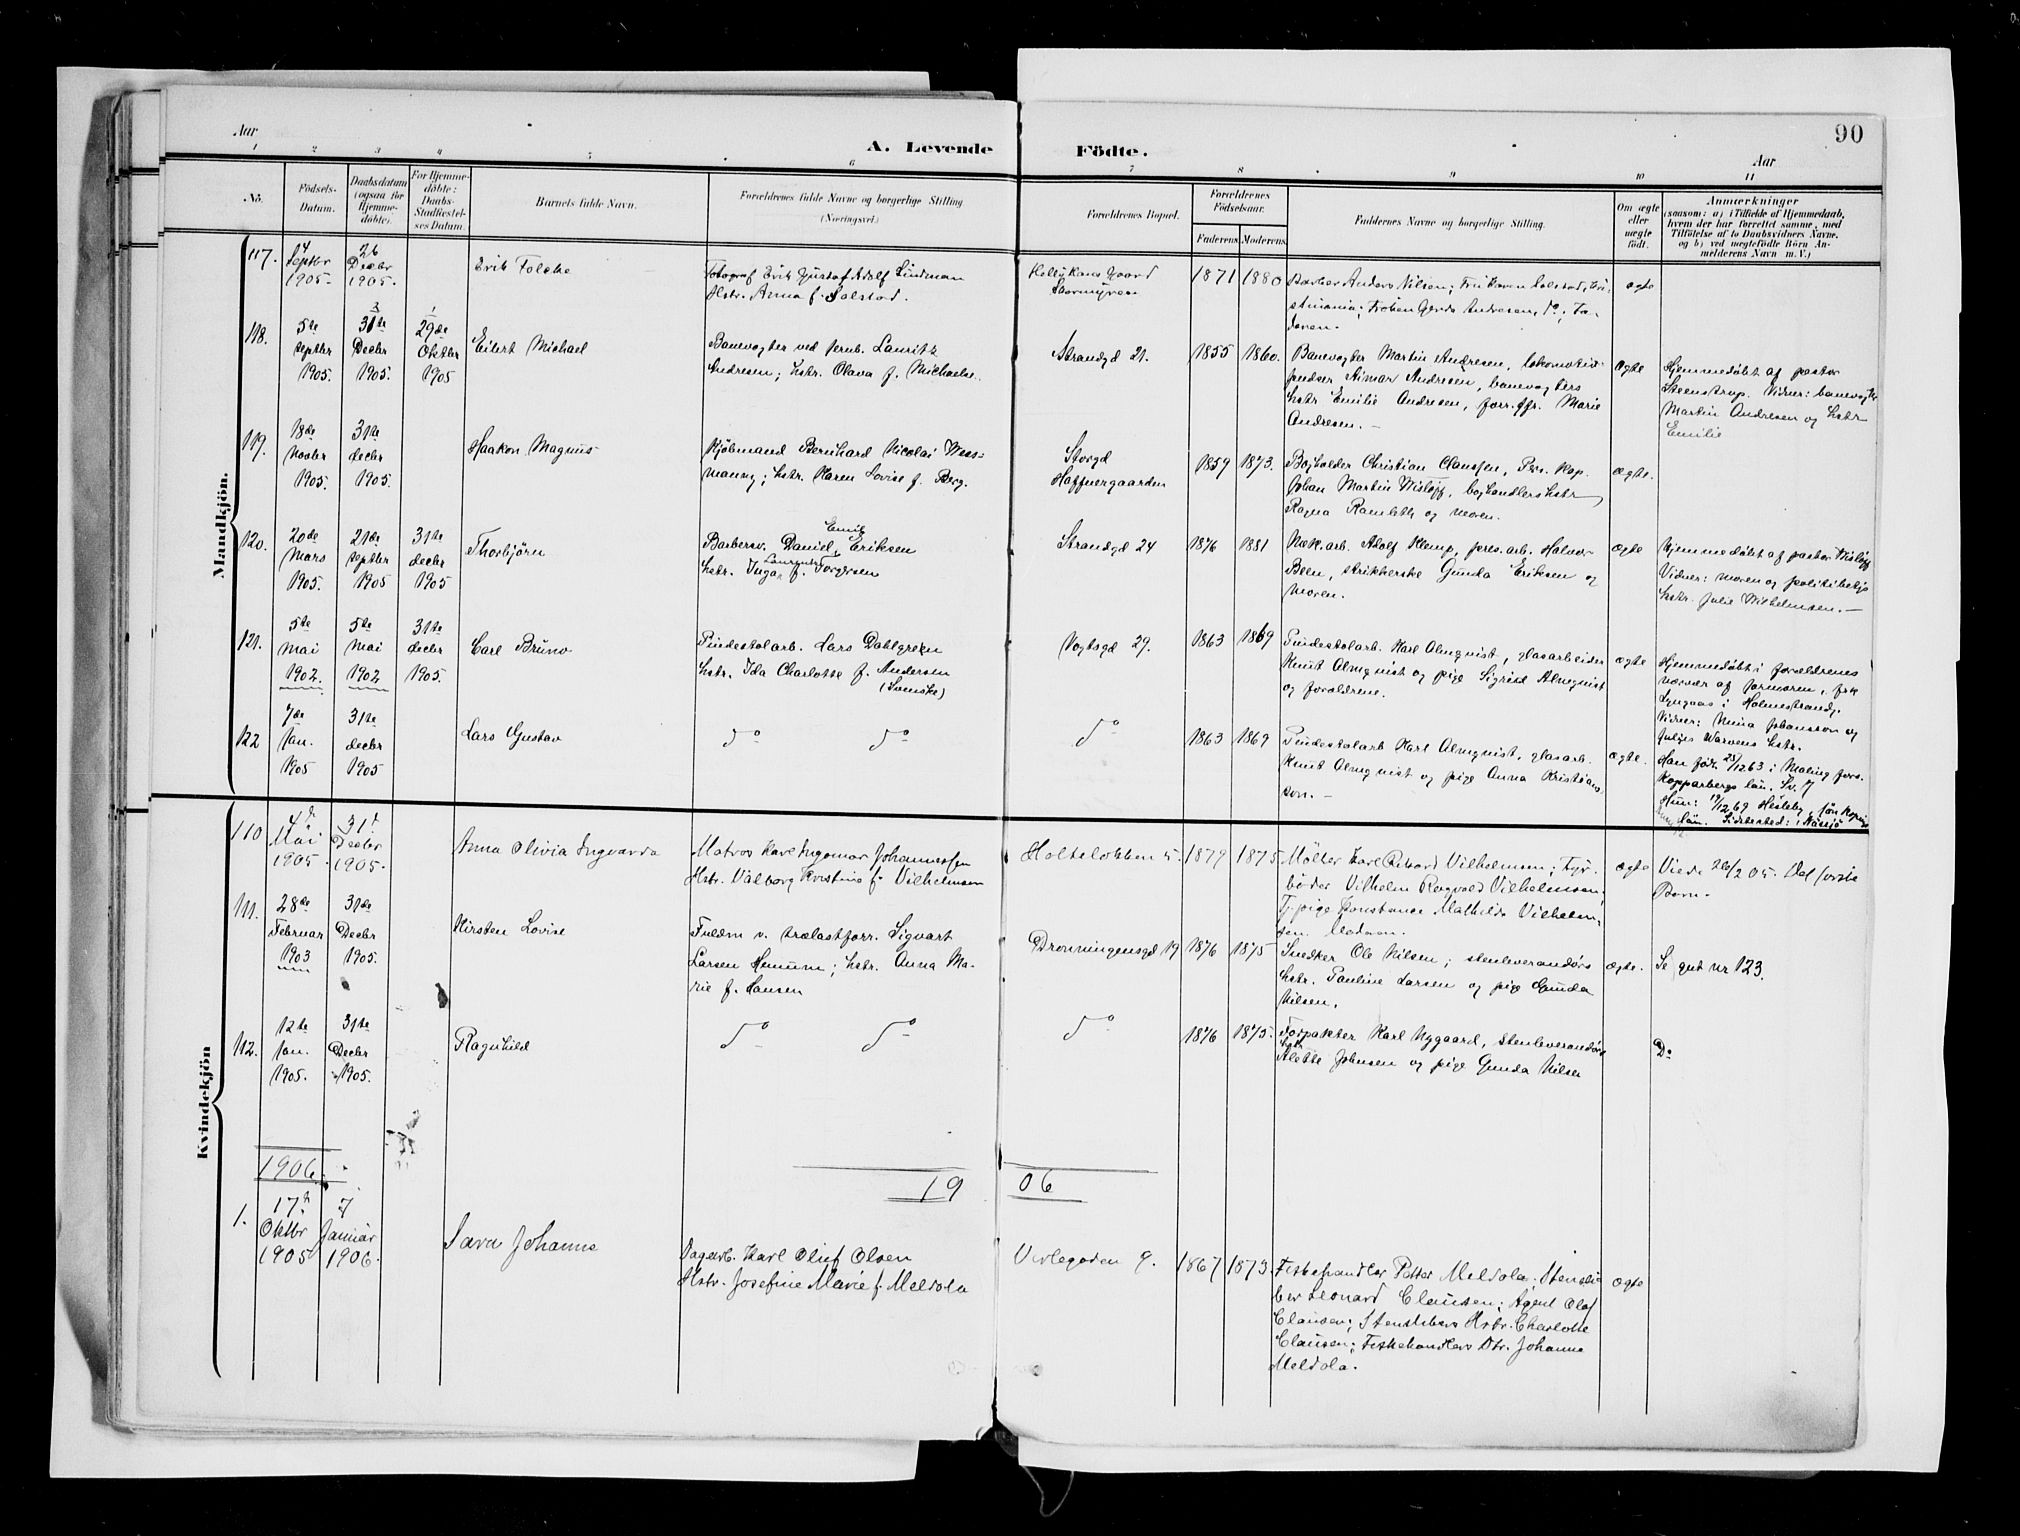 90
Aar
A. Levende Födte.
Aar
1 2 3 4 5 6 7 8 9 10 11
No.
Födsels-
Datum.
Daabsdatum
(ogsaa for
Hjemme-
döbte).
For Hjemme-
döbte:
Daabs-
Stadfæstel-
ses Datum.
Barnets fulde Navn.
Forældrenes fulde Navne og borgerlige Stilling
(Næringsvei.)
Forældrenes Bopæl.
Forældrenes
Födselsaar.
Faderens Moderens
Faddernes Navne og borgerlige Stilling.
Om ægte
eller
uægte
födt.
Anmærkninger
(saasom: a) i Tilfælde af Hjemmedaab,
hvem der har forrettet samme, med
Tilföielse af to Daabsvidners Navne,
og b) ved uægtefödte Börn An-
melderens Navn m. V.)
Mandkjön.
117.
4
Septbr
1905.
26
Decbr
1905.
Erik Folche
Fotograf Erik Gustaf Adolf Lindman
Hstr. Anna f. Solstad.
Gaard
Stormyren
1871 1880
Barber Anders Nilsen; Frk Karen Solstad, Kri-
stiania; Fröken Gerda Andresen, do; Fa-
deren.
ægte
118.
5te
septbr
1905.
31te
Decbr
1905.
29de
Oktbr
1905
Eilert Michael
Banevogter ved jernb. Lauritz
Andresen; hstr. Olava f. Michaelse.
Strandgd 21.
1855 1860.
Banevogter Martin Andresen, lokomotiv-
pudser Aimar Andresen, banevogters
hstr Emilie Andresen, forr.ffr. Marie
Andresen. —
ægte
Hjemmedöbt af pastor
Steenstrup. Vidner: banevogter
Martin Andresen og hstr
Emilie
119.
18de
Novbr
1905.
31te
decbr
1905.
Haakon Magnus
Kjöbmand Bernhard Nicolai Wess-
mann; hstr. Karen Lovise f. Berg.
Storgd
Haffnergaarden
1859 1873.
Bogholder Christian Clausen, Pers. Kap.
Johan Martin Wislöff, boghandlershstr
Ragna Ramleth og moren.
ægte.
120.
20de
Mars
1905
21de
septbr
1905
31te
decbr
1905
Thorbjörn
Barbersv. Daniel Emil Eriksen
hstr. Inga Laurentze f. Torgersen
Strandgd 24
1876 1881
Mek.arb. Adolf Klemp, pres.arb. Halvor
Been, strikkerske Gunda Eriksen og
moren.
ægte
Hjemmedöbt af pastor Wislöff
Vidner: moren og politibetj.
hstr. Julie Wilhelmsen. —
121.
5te
mai
1902.
5te
mai
1902
31te
decbr
1905.
Carl Bruno
Pindestolarb. Lars Dahlgren
hstr. Ida Charlotte f. Andersen
(Svenske)
Vogtsgd 29.
1863 1869
Pindestolarb. Karl Almqvist, glasarbeider
Knut Almqvist og pige Sigrid Almqvist
og forældrene.
ægte
Hjemmedöbt i forældrenes
nærvær af jormoren, frk
Lyngaas i Holmestrand.
Vidner: Mina Johansson og
Warvens hstr.
122
7de
Jan.
1905
31te
decbr
1905
Lars Gustav
do do
do
1863 1869
Pindestolarb Karl Almqvist, glasarb.
Knut Almqvist og pige Anna Kristians-
son. —
ægte.
Han född 25/12 63 i Malung förs.
Kopparbergs län. Sv.
Hun: 19/12 69 Hesleby, Jönköpings
län. Sidstested: Nässjö
Kvindekjön
110
4d
Mai.
1905.
31t
Decbr
1905.
Anna Olivia Ingvarda
Matros Karl Ingomar Johannessen
Hstr. Valborg Kristine f. Vilhelmsen
Holteløkken 5.
1879 1875
Mölter Karl Rikard Vilhelmsen; Fyr-
böder Vilhelm Ragvald Vilhelmsen;
Tj.pige Konstanse Mathilde Vilhelm-
sen. Moderen.
ægte
Viede 26/2 05. Det förste
Barn.
111.
28de
Februar
1903
31de
Decbr
1905.
Kirsten Lovise
Fuldm v. trælastforr. Sigvart
Larsen Hemum; hstr. Anna Ma-
rie f. Hansen
Dronningensgd 19
1876 1875
Snedker Ole Nilsen; stenleverandörs
hstr. Pauline Larsen og pige Gunda
Nilsen.
ægte.
Se gut nr 123.
112.
12te
Jan.
1905.
31te
Decbr
1905.
Ragnhild
do do
do
1876 1875.
Forpakter Karl Nygaard, stenleverandörs
hstr
Alette Johnsen og pige Gunda Nilsen
Do
1906.
19 06
1.
17t
Oktbr
1905
7
Januar
1906.
Sara Johanne
Dagarb. Karl Oluf Olsen
Hstr. Josefine Marie f. Meldola
Verlegaden 9.
1867 1873.
Fiskehandler Petter Meldola; Stensli-
ber Leonard Clausen; Agent Olaf
Clausen; Stenslibers Hstr. Charlotte
Clausen; Fiskehandlers Dtr. Johanne
Meldola.
ægte